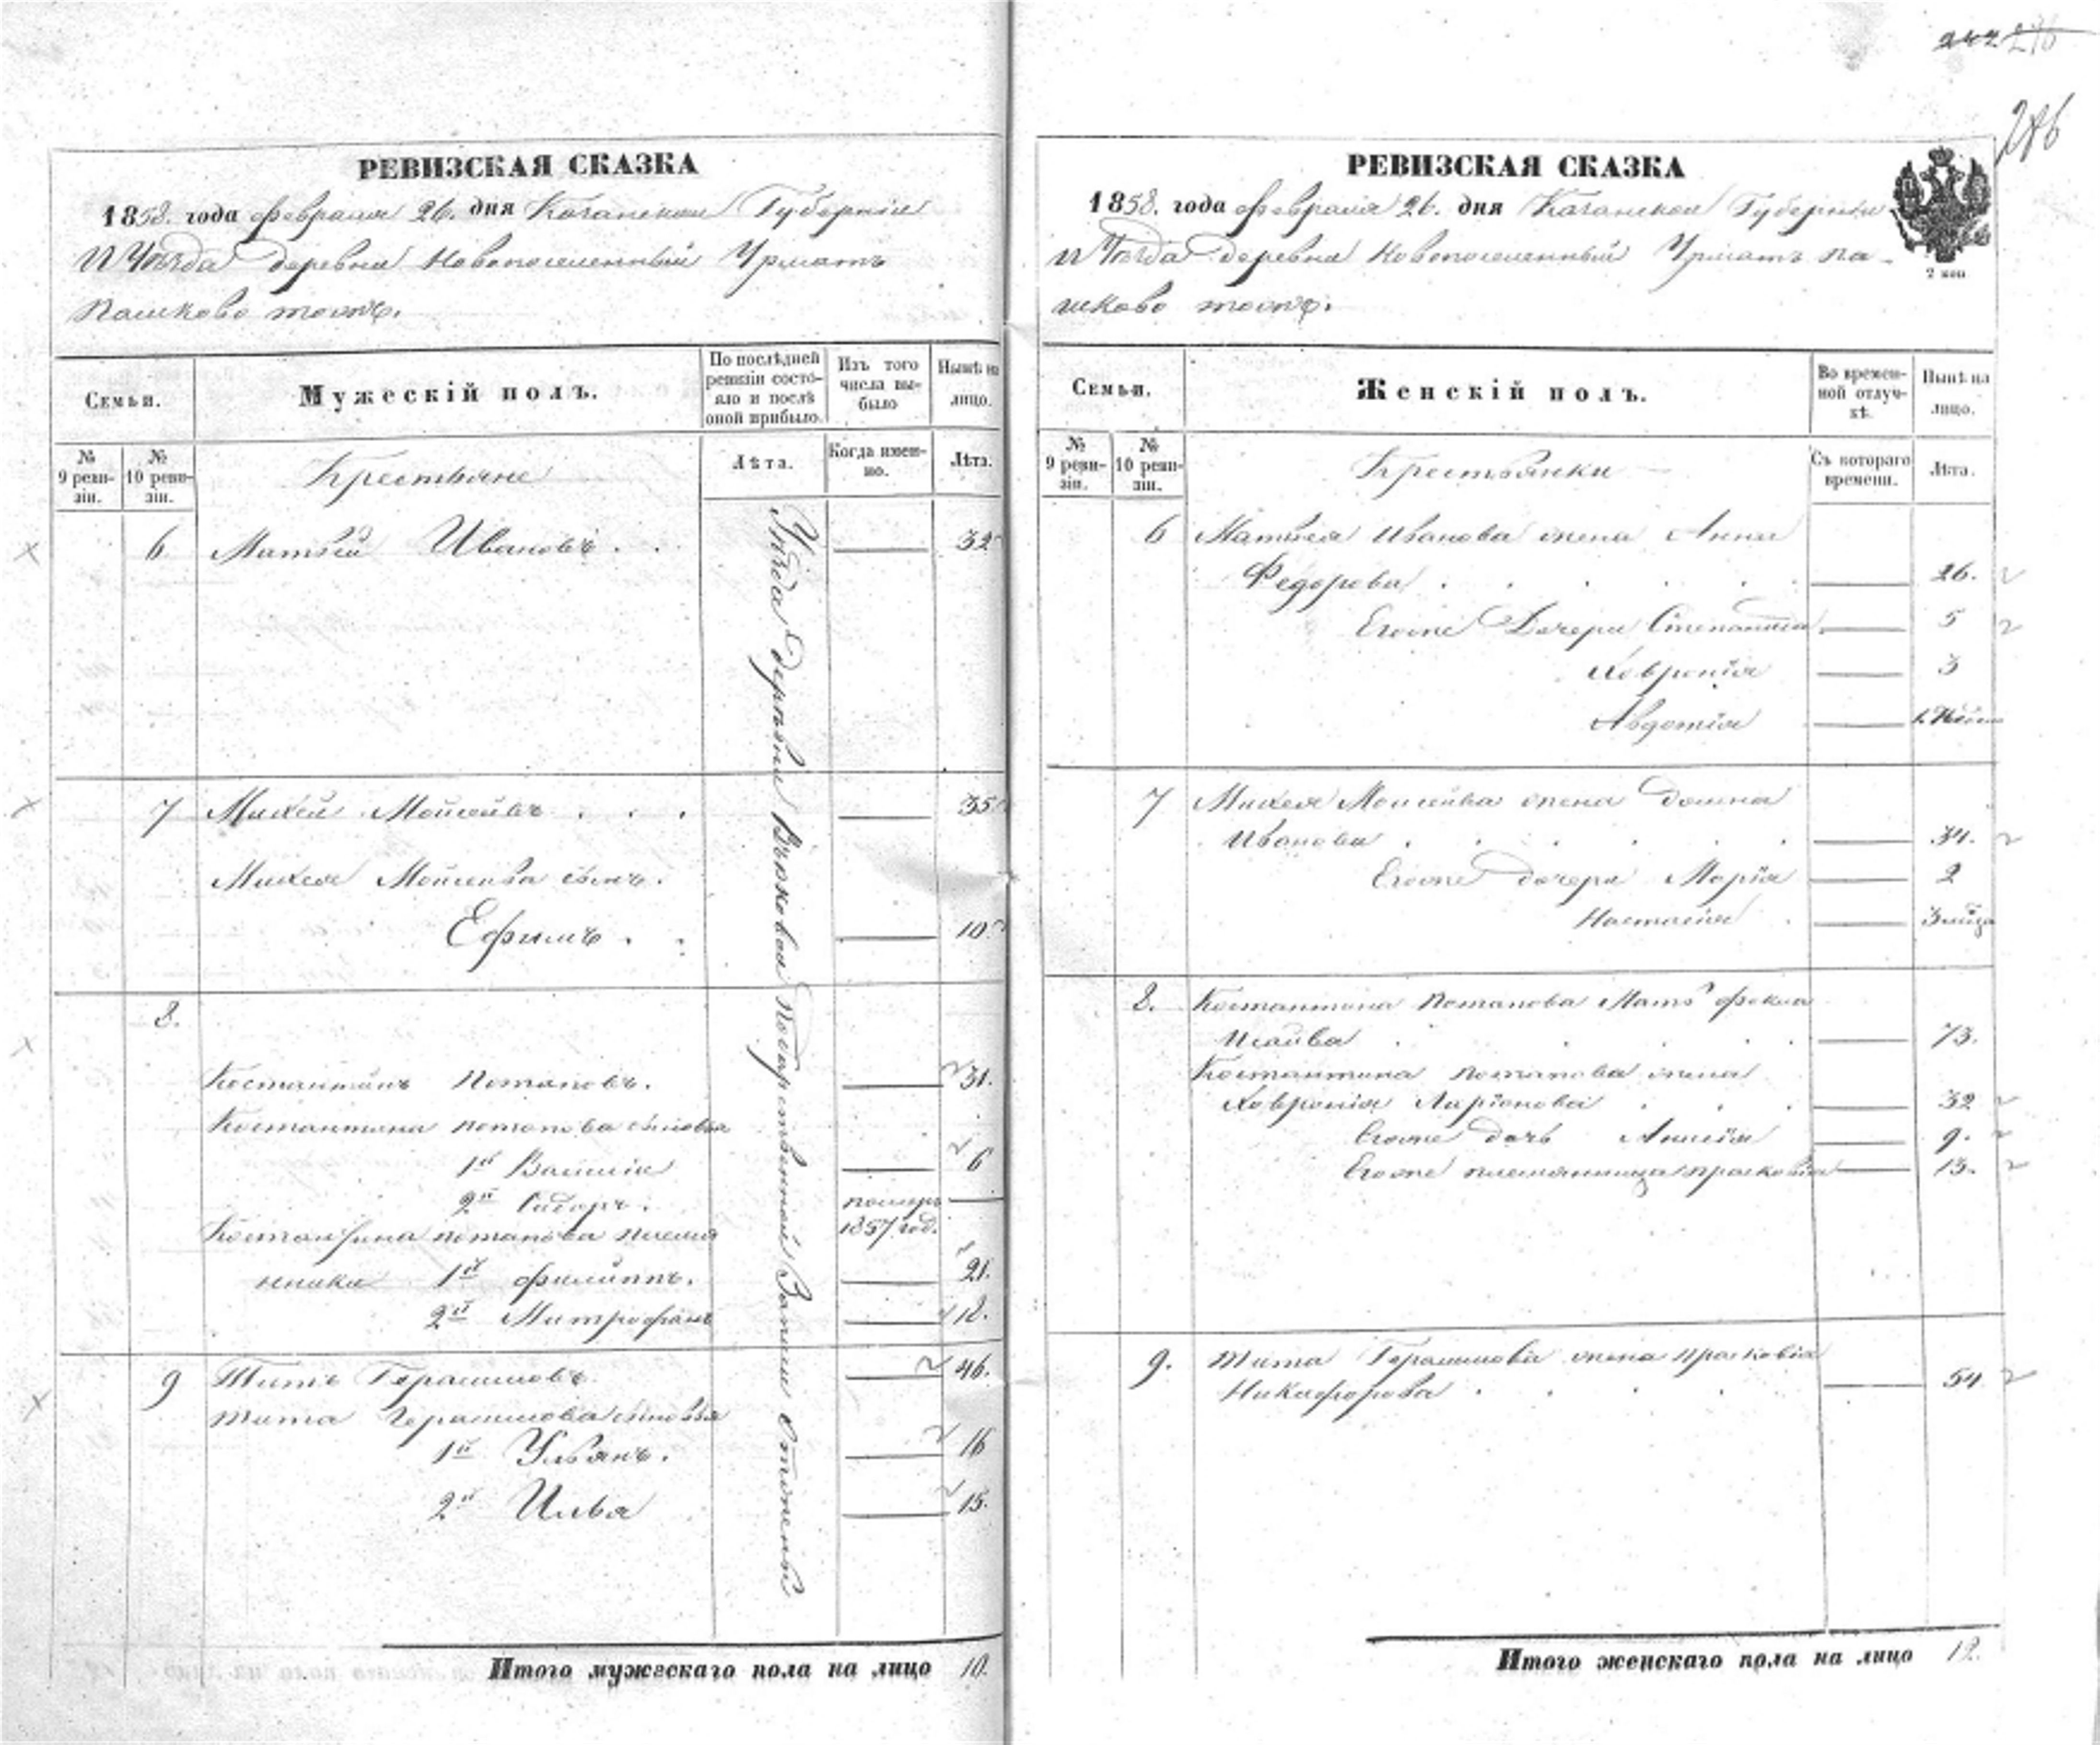 286
РЕВИЗСКАЯ СКАЗКА
1858. года февраля 26. дня Казанской Губерніи
И Уѣзда деревни Новопоселенный Урматъ
Пашково тожъ.
Семьи.
Мужескій полъ.
По послѣдней ревизіи состояло и послѣ оной прибыло.
Изъ того числа выбыло
Нынѣ на лицо.
№ 9 ревизіи.
№ 10 ревизіи.
Крестьяне
Лѣта.
Когда именно.
Лѣта.
6. Матвей Ивановъ. 32
7 Михей Мойсеивъ 35
Михея Мойсеива сынъ.
Ефимъ 10
8.
Костантинъ Потаповъ. 31.
Костантина потапова сыновья
1й Василій 6
2й Сидоръ. померъ
1857 год.
Костантина потапова племя
нники 1й филиппъ. 21.
2й Митрофанъ 18.
9 Титъ Герасимовъ 46.
Тита Герасимова сыновья
1й Ульянъ. 16
2й Илья 15.
Уѣзда деревни
Итого мужескаго пола на лицо 10.
РЕВИЗСКАЯ СКАЗКА
1858. года февраля 26. дня Казанской Губерніи
И Уѣзда деревни Новопоселенный Урматъ Па-
шково тожъ.
2 коп
Семьи.
Женскій полъ.
Во временной отлучкѣ.
Нынѣ на лицо.
№ 9 ревизіи.
№ 10 ревизіи.
Крестьянки
Съ котораго времени.
Лѣта.
6 Матвея Иванова жена Анна
Федорова 26.
Егоже Дочери Степанида 5
Хавронія 3
Авдотія
7 Михея Моисеива жена Домна
Иванова 34.
Егоже дочери Марія 2
Настасія 3 мѣца
8. Костантина Потапова Мать фекла
Исаива 73.
Костантина потапова жена
Хавронія Ларіонова 32
Егоже дочь Анисія 9.
Егоже племянница прасковія 13.
9. Тита Герасимова жена прасковія
Никифорова 54
Итого женскаго пола на лицо 12.